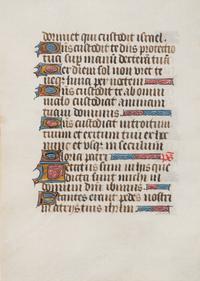 dormiet qui custodit israel.
Dñs custodit te dñs protectio
tua super manum dexteram tuã
Per diem sol non uret te
neqz luna per noctem
Dñs custodit te ab omni
malo custodiat animam
tuam dominus
Dñs custodiat introitum
tuum et exitum tuum ex hoc
nunc et usqz in seculum
Gloria patri ps
Letatus sum in hys que
dicta sunt michi in
domum dñi ibimus
Stantes erant pedes nostri
in atrijs tuis ihrlm